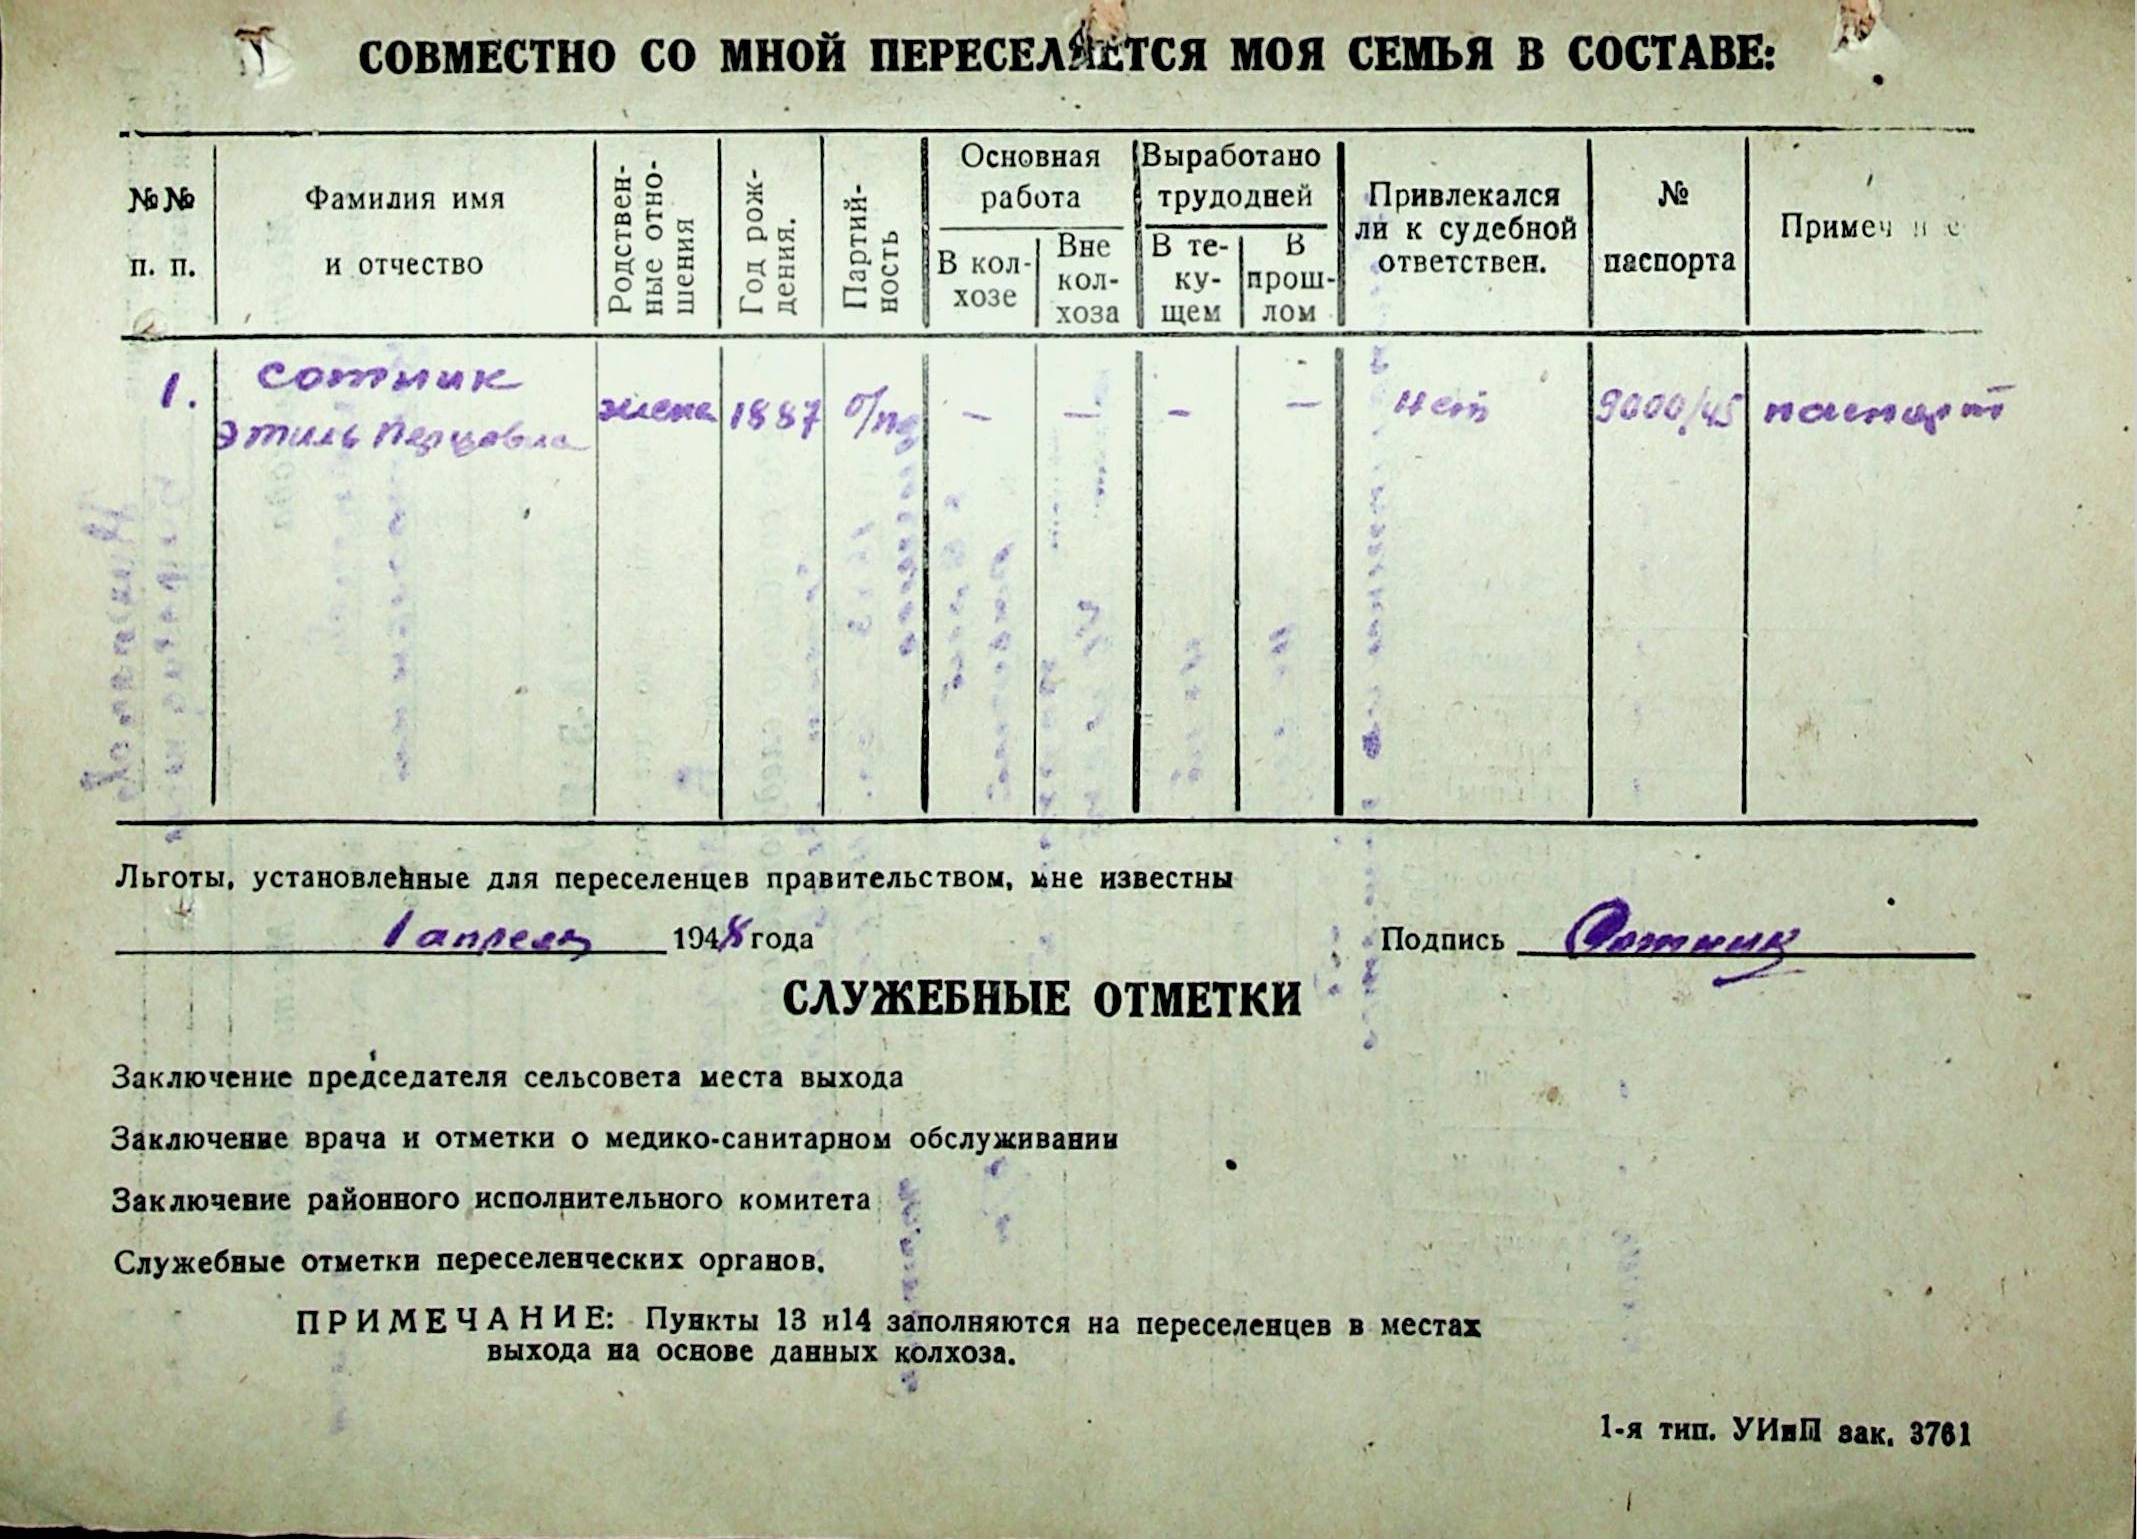 СОВМЕСТНО СО МНОЙ ПЕРЕСЕЛЯЕТСЯ МОЯ СЕМЬЯ В СОСТАВЕ:
№№ п. п.
Фамилия имя и отчество
Родствен-
ные отно-
шения
Год рож-
дения.
Партий-
ность
Основная
работа
В кол-
хозе
Вне
кол-
хоза
Выработано
трудодней
В те-
ку-
щем
В
прош-
лом
Привлекался
ли к судебной
ответствен.
№
паспорта
Примеч н е
1.
Сотник
Этиль Перцовна
жена
1887
б/п
—
—
—
—
нет
9000/45
паспорт
Льготы, установленные для переселенцев правительством, мне известны
1 апреля 1948 года
Подпись Сотник
СЛУЖЕБНЫЕ ОТМЕТКИ
Заключение председателя сельсовета места выхода
Заключение врача и отметки о медико-санитарном обслуживании
Заключение районного исполнительного комитета
Служебные отметки переселенческих органов.
ПРИМЕЧАНИЕ: Пункты 13 и14 заполняются на переселенцев в местах
выхода на основе данных колхоза.
1-я тип. УИиП зак. 3761